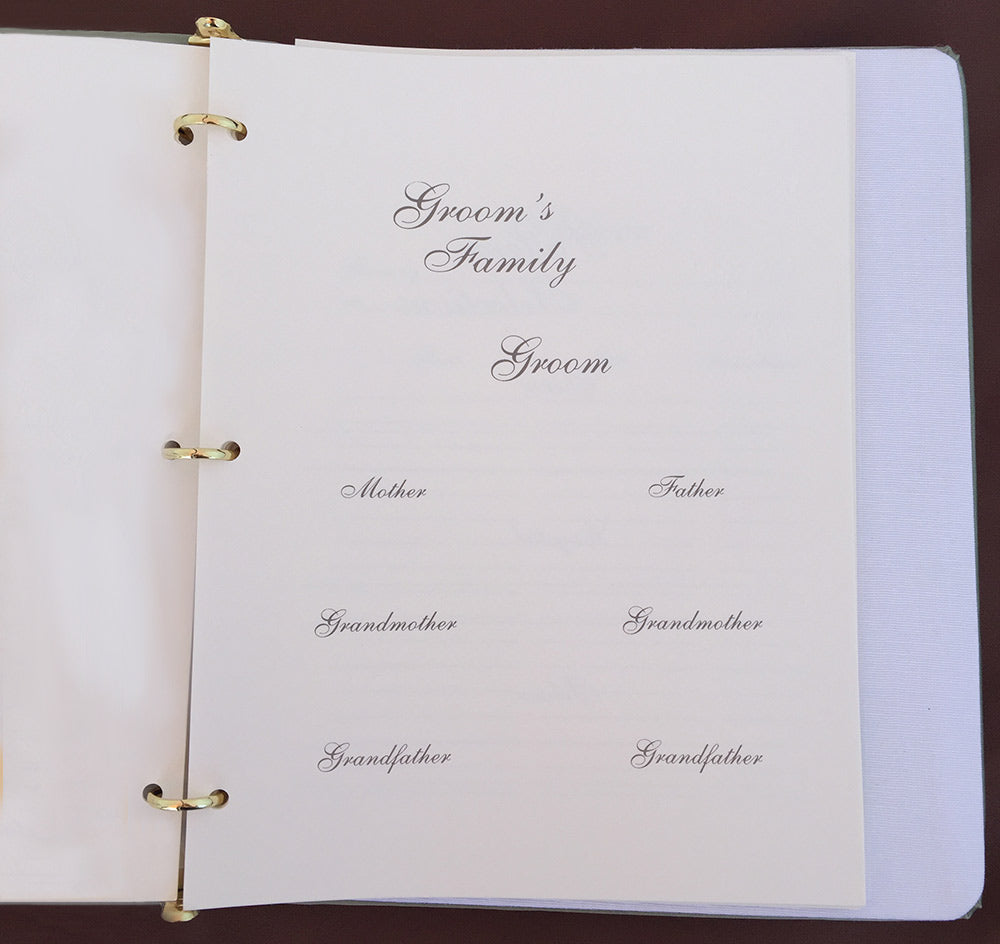 Groom's
Family
Groom
Mother Father
Grandmother Grandmother
Grandfather Grandfather